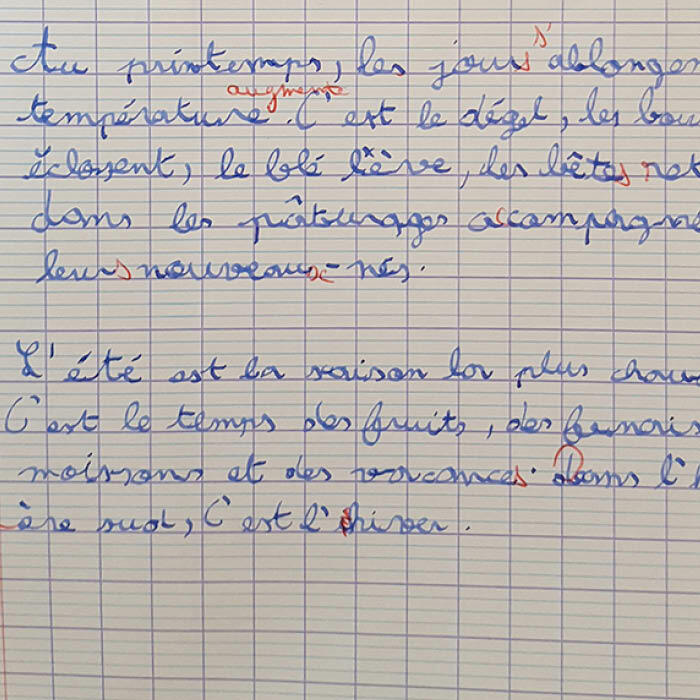 Au printemps, les jours s'allongen
température augmente. C'est le dégel, les bou
éclosent, le blé lève, les bêtes ret
dans les pâturages accompagné
leurs nouveaux-nés.
L'été est la saison la plus chau
C'est le temps des fruits, des fenais
moissons et des vacances. dans l'h
ère sud, C'est l'hiver.